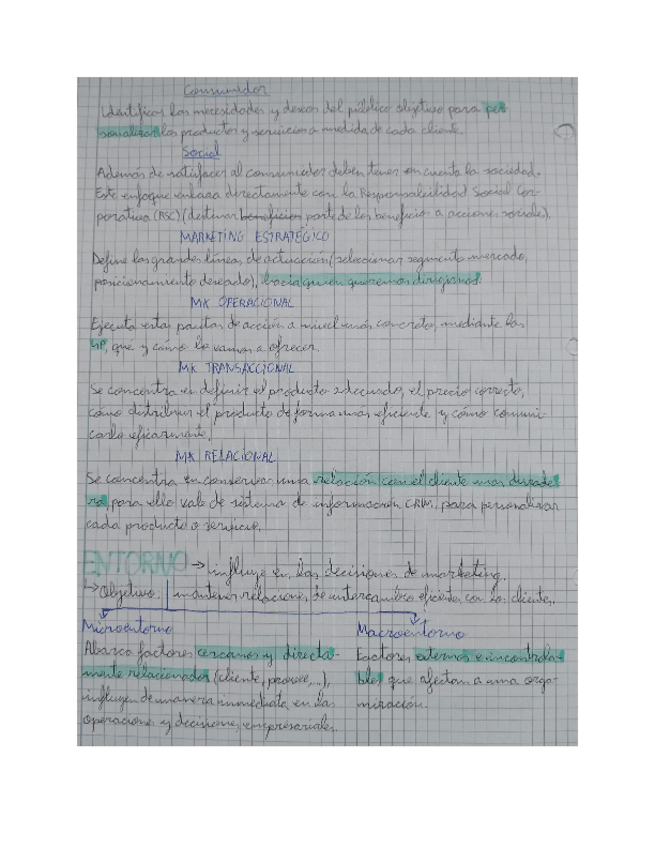 Consumidor
Identificar las necesidades y deseos del público objetivo para per
sonalizar los productos y servicios a medida de cada cliente.
Social
Además de satisfacer al consumidor deben tener en cuenta la sociedad.
Este enfoque enlaza directamente con la Responsabilidad Social Cor-
porativa (RSC) (destinar beneficios parte de los beneficio a acciones sociales).
MARKETING ESTRATÉGICO
Define las grandes líneas de actuación (seleccionar segmento mercado,
posicionamiento deseado), hacia quien queremos dirigirnos.
MK OPERACIONAL
Ejecuta estas pautas de acción a nivel más concreto, mediante las
4P, qué y cómo lo vamos a ofrecer.
MK TRANSACCIONAL
Se concentra en definir el producto adecuado, el precio correcto,
cómo distribuir el producto de forma más eficiente y cómo comuni-
carlo eficazmente.
MK RELACIONAL
Se concentra en conservar una relación con el cliente mas durade
ra, para ello vale de sistema de información CRM, para personalizar
cada producto o servicio.
ENTORNO → influye en las decisiones de marketing.
↳ Objetivo: mantener relaciones de intercambio eficientes con los clientes.
Microentorno
Abarca factores cercanos y directa-
mente relacionados (cliente, provee,...),
influyen de manera inmediata en las
operaciones y decisiones empresariales.
Macroentorno
Factores externos e incontrola-
bles que afectan a una orga-
nización.